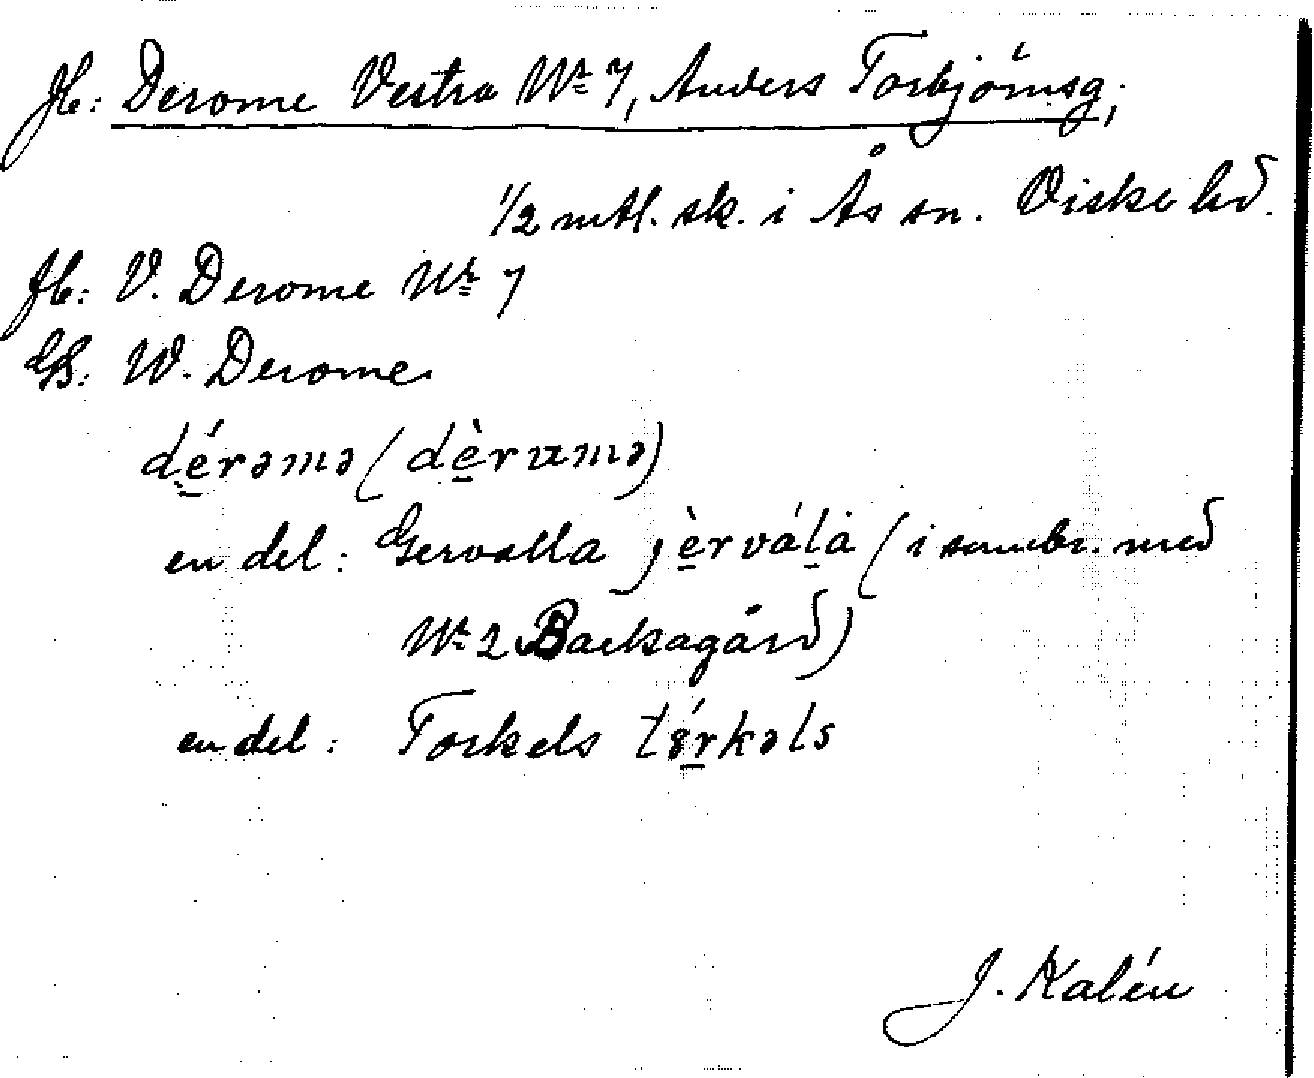 Jb: Derome Vestra Nr 7, Anders Torbjörnsg;
1/2 mtl. sk. i Ås sn. Viske hd.
Jb: V. Derome Nr 7
GS: W. Derome
dérəmə (dèrɯmə)
en del: Gervalla jèrválà (i sambr. med
Nr 2 Backagård)
en del: Torkels tɵ́rkəls
J. Kalén